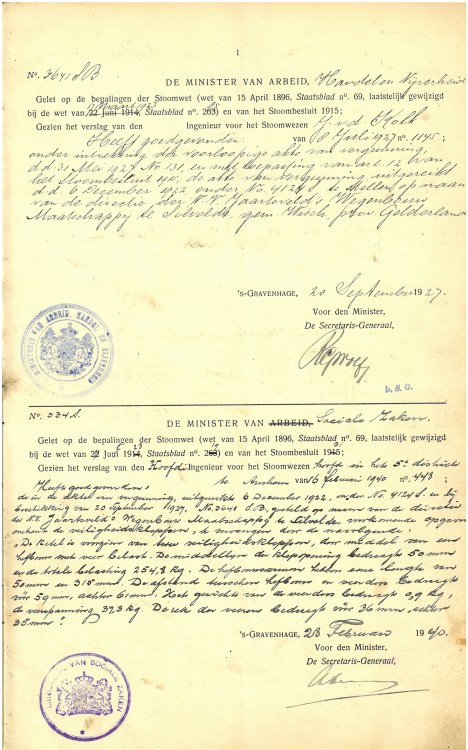 1
No. 3641 S.B DE MINISTER VAN ARBEID, Handel en Nijverheid
Gelet op de bepalingen der Stoomwet (wet van 15 April 1896, Staatsblad no. 69, laatstelijk gewijzigd
bij de wet van 22 Juni 1914, Staatsblad no. 263) en het Stoombesluit 1915;
Gezien het verslag van den Ingenieur voor het Stoomwezen v.d. Kolk
van 8 Juli 1927 no. 1145;
Heeft goedgevonden:
onder intrekking der voorloopige akte van vergunning,
d.d. 31 Mei 1927 No. 131 en met toepassing van art. 12 van
het Stoombesluit de akte van vergunning uitgereikt
d.d. 6 December 1922 onder No. 4124 S. te stellen op naam
van de directie der N.V. Jaartsveld's Wegenbouw
Maatschappij te Silvolde, gem. Wisch, prov. Gelderland
'S-GRAVENHAGE, 20 September 1927.
Voor den Minister,
De Secretaris-Generaal,
MINISTERIE VAN ARBEID, HANDEL EN NIJVERHEID
No. 334 S.
DE MINISTER VAN ARBEID, Sociale Zaken.
Gelet op de bepalingen der Stoomwet (wet van 15 April 1896, Staatsblad no. 69, laatstelijk gewijzigd
bij de wet van Juni Staatsblad no. en het Stoombesluit
Gezien het verslag van den Hoofd Ingenieur voor het Stoomwezen hoofd in het 5e district
te Arnhem van 16 Februari 1940 no. 448;
Heeft goedgevonden:
de in de akte van vergunning, uitgereikt 6 December 1922, onder No 4124 S. en bij
beschikking van 20 September 1927, No. 3641 S.B, gesteld op naam van de directie
der N.V. Jaartsveld's Wegenbouw Maatschappij te Silvolde, voorkomende opgaven
omtrent de veiligheidskleppen, te vervangen door de navolgende:
De ketel is voorzien van twee veiligheidskleppen, door middel van een
hefboom met veer belast. De middellijn der klepopening bedraagt 50 mm
en de totale belasting 254,8 kg. De hefboomsarmen hebben eene lengte van
50 mm en 315 mm. De afstand tusschen hefboom en veerdoos bedraagt
vóór 59 mm, achter 61 mm. Het gewicht van de veerdoos bedraagt 0,9 kg,
de veerspanning 39,3 kg. De rek der veeren bedraagt vóór 36 mm, achter
35 mm.
'S-GRAVENHAGE, 28 Februari 1940.
Voor den Minister,
De Secretaris-Generaal,
MINISTERIE VAN SOCIALE ZAKEN